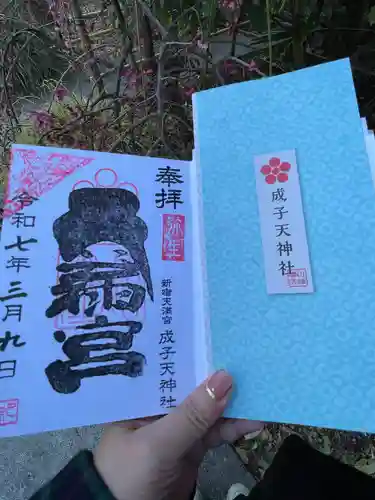 奉拝
弥生
新宿天満宮
成子天神社
令和七年三月九日
成子天神社